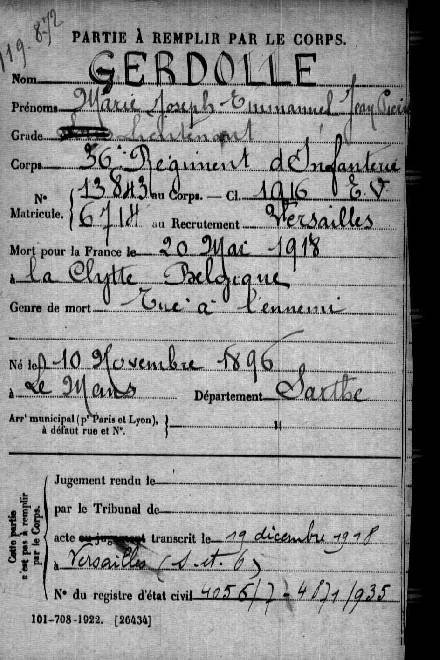 119.872
PARTIE À REMPLIR PAR LE CORPS.
Nom GERDOLLE
Prénoms Marie Joseph Emmanuel Jean
Grade Lieutenant
Corps 36e Régiment d'Infanterie
N° 13843 au Corps. — Cl. 1916 E.V
Matricule. 6714 au Recrutement Versailles
Mort pour la France le 20 Mai 1918
à La Clytte Belgique
Genre de mort Tué à l'ennemi
Né le 10 Novembre 1896
à Le Mans Département Sarthe
Arrt municipal (pr Paris et Lyon),
à défaut rue et N°.
Cette partie
n'est pas à remplir
par le Corps.
Jugement rendu le
par le Tribunal de
acte ou jugement transcrit le 19 décembre 1918
à Versailles (S. et. O)
N° du registre d'état civil 4871/935
101-708-1922. [26434]